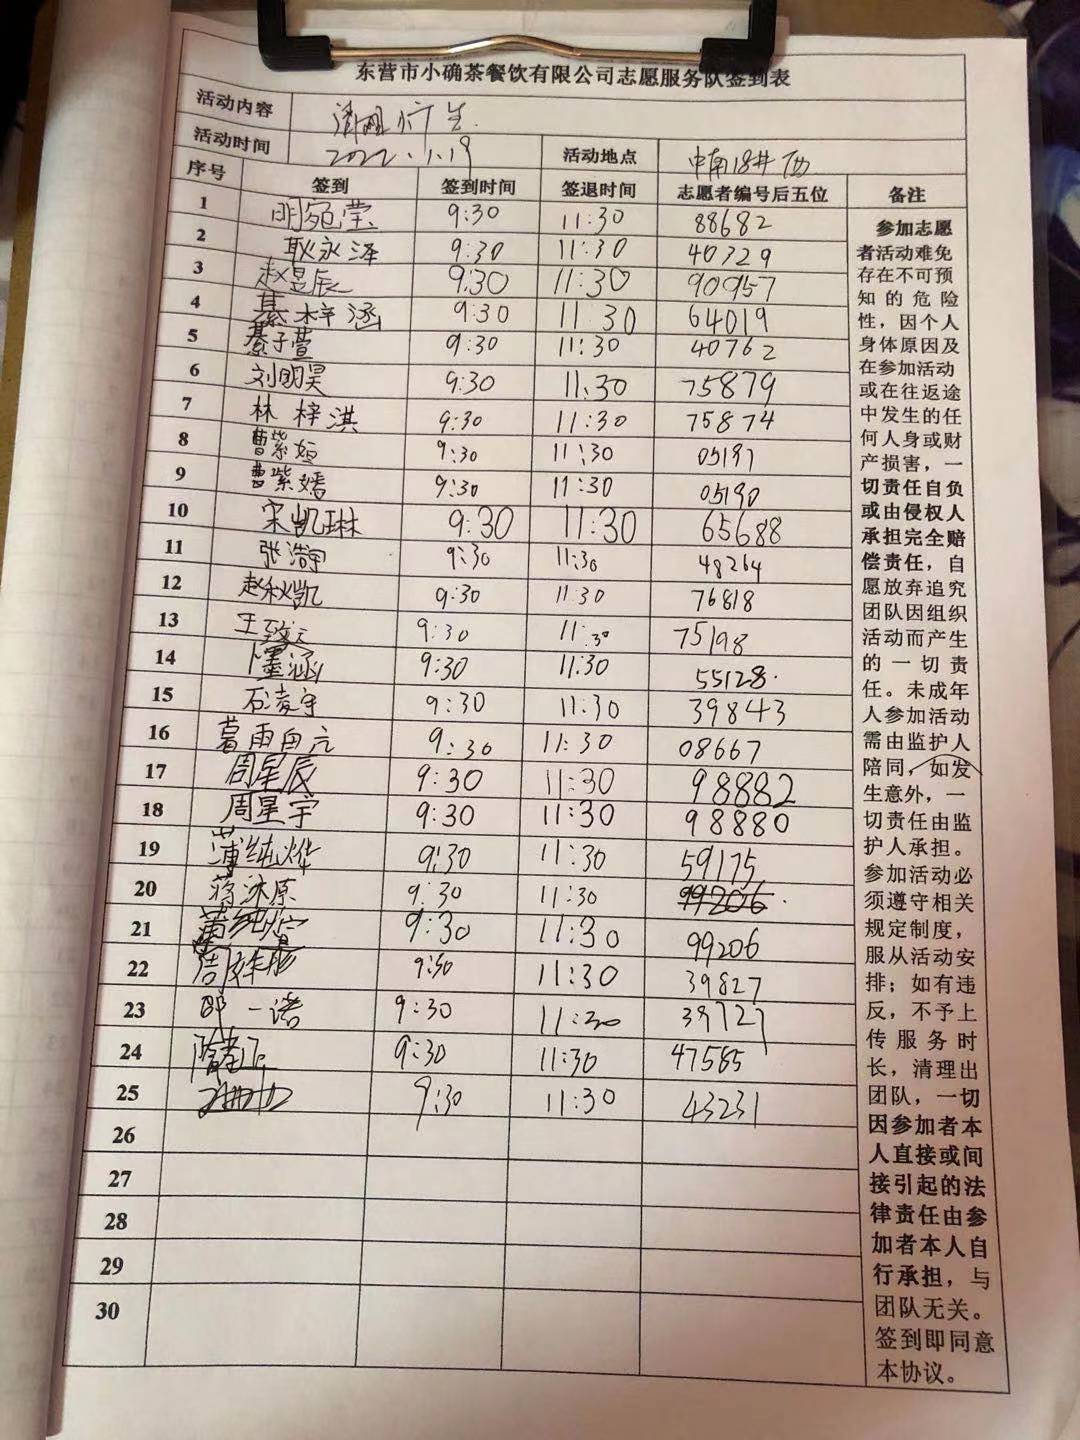 东营市小确茶餐饮有限公司志愿服务队签到表
活动内容
活动时间 2022.1.19 活动地点 中南18井西
序号 签到 签到时间 签退时间 志愿者编号后五位 备注
1 明宛莹 9:30 11:30 88682
2 耿永泽 9:30 11:30 40729
3 赵昱辰 9:30 11:30 90957
4 綦梓涵 9:30 11:30 64019
5 綦子萱 9:30 11:30 40762
6 刘明昊 9:30 11:30 75879
7 林梓淇 9:30 11:30 75874
8 曹紫姮 9:30 11:30 05191
9 曹紫嫱 9:30 11:30 05190
10 宋凯琳 9:30 11:30 65688
11 张浩宇 9:30 11:30 48264
12 赵秋凯 9:30 11:30 76818
13 王致 9:30 11:30 75198
14 卜墨涵 9:30 11:30 55128
15 石凌宇 9:30 11:30 39843
16 暮雨自亢 9:30 11:30 08667
17 周星辰 9:30 11:30 98882
18 周星宇 9:30 11:30 98880
19 薄纯烨 9:30 11:30 59175
20 蒋沐原 9:30 11:30 99206
21 9:30 11:30 99206
22 9:30 11:30 39827
23 邵一诺 9:30 11:30 39727
24 9:30 11:30 47585
25 9:30 11:30 43231
26
27
28
29
30
参加志愿
者活动难免
存在不可预
知的危险
性，因个人
身体原因及
在参加活动
或在往返途
中发生的任
何人身或财
产损害，一
切责任自负
或由侵权人
承担完全赔
偿责任，自
愿放弃追究
团队因组织
活动而产生
的一切责
任。未成年
人参加活动
需由监护人
陪同，如发
生意外，一
切责任由监
护人承担。
参加活动必
须遵守相关
规定制度，
服从活动安
排；如有违
反，不予上
传服务时
长，清理出
团队，一切
因参加者本
人直接或间
接引起的法
律责任由参
加者本人自
行承担，与
团队无关。
签到即同意
本协议。